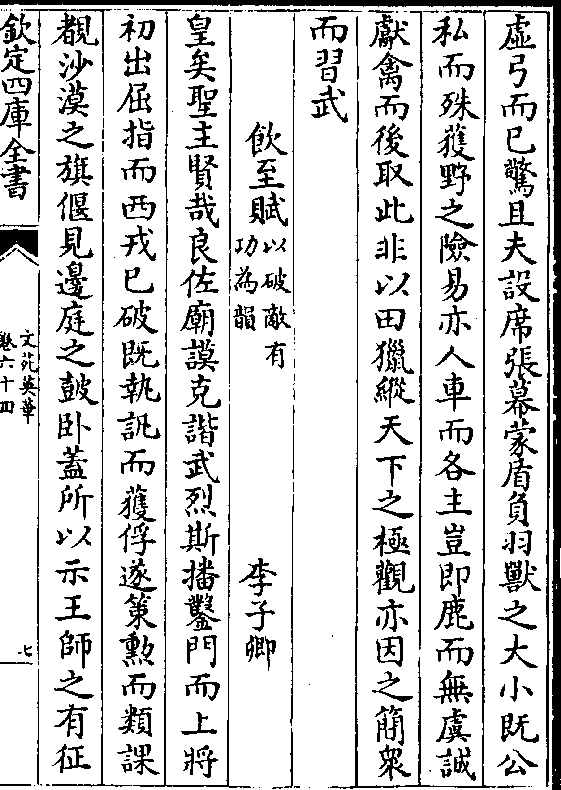 虛弓而已驚且夫設席張幕蒙盾負羽獸之大小既公
私而殊獲野之險易亦人車而各主豈即鹿而無虞誠
獻禽而後取此非以田獵縱天下之極觀亦因之簡衆
而習武
飲至賦以破敵有功為韻 李子卿
皇矣聖主賢哉良佐廟謨克諧武烈斯播鑿門而上將
初出屈指而西戎已破既執訊而獲俘遂策勲而類課
覩沙漠之旗偃見邊庭之鼓卧蓋所以示王師之有征
欽定四庫全書
文苑英華
卷六十四
七